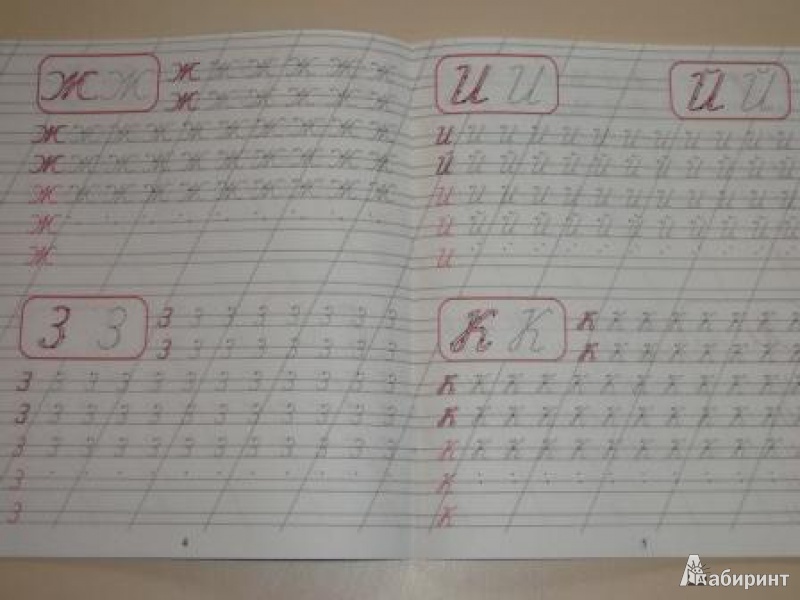 Ж Ж Ж Ж Ж Ж Ж Ж
Ж Ж Ж Ж Ж Ж
Ж Ж Ж Ж Ж Ж Ж Ж Ж Ж
Ж Ж Ж Ж Ж Ж Ж Ж Ж Ж
Ж Ж Ж Ж Ж Ж Ж Ж Ж Ж
Ж
Ж
З З З З З З З З З З
З З З З З З З З
З З З З З З З З З З З З
З З З З З З З З З З З З
З З З З З З З З З З З З
З
З
4
И И Й Й
И И И И И И И И И И И И
Й Й Й Й Й Й Й Й Й Й Й Й
И И И И И И И И И И И И
Й Й Й Й Й Й Й Й Й Й Й Й
И
К К К К К К К К К К
К К К К К К К К
К К К К К К К К К К К К
К К К К К К К К К К К К
К К К К К К К К К К К К
К
К
5
Лабиринт